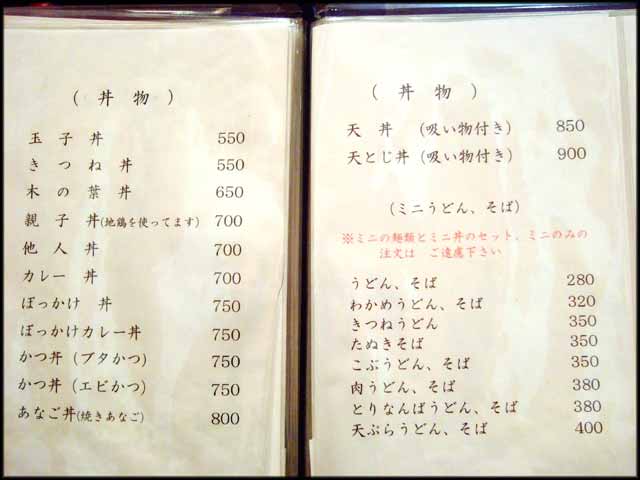 ( 丼 物 )
玉 子 丼 550
きつね 丼 550
木の葉丼 650
親 子 丼(地鶏を使ってます) 700
他 人 丼 700
カレー 丼 700
ぼっかけ 丼 750
ぼっかけカレー丼 750
かつ丼(ブタかつ) 750
かつ丼(エビかつ) 750
あなご丼(焼きあなご) 800
( 丼 物 )
天 丼 (吸い物付き) 850
天とじ丼(吸い物付き) 900
(ミニうどん、そば)
※ミニの麺類とミニ丼のセット、ミニのみの
注文は ご遠慮下さい
うどん、そば 280
わかめうどん、そば 320
きつねうどん 350
たぬきそば 350
こぶうどん、そば 350
肉うどん、そば 380
とりなんばうどん、そば 380
天ぷらうどん、そば 400